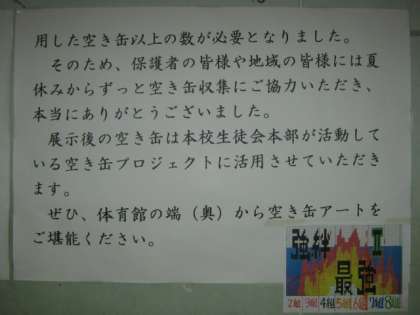 用した空き缶以上の数が必要となりました。
そのため、保護者の皆様や地域の皆様には夏
休みからずっと空き缶収集にご協力いただき、
本当にありがとうございました。
展示後の空き缶は本校生徒会本部が活動して
いる空き缶プロジェクトに活用させていただき
ます。
ぜひ、体育館の端（奥）から空き缶アートを
ご堪能ください。
強絆 II
最強
2組 3組 4組 5組 6組 7組 8組